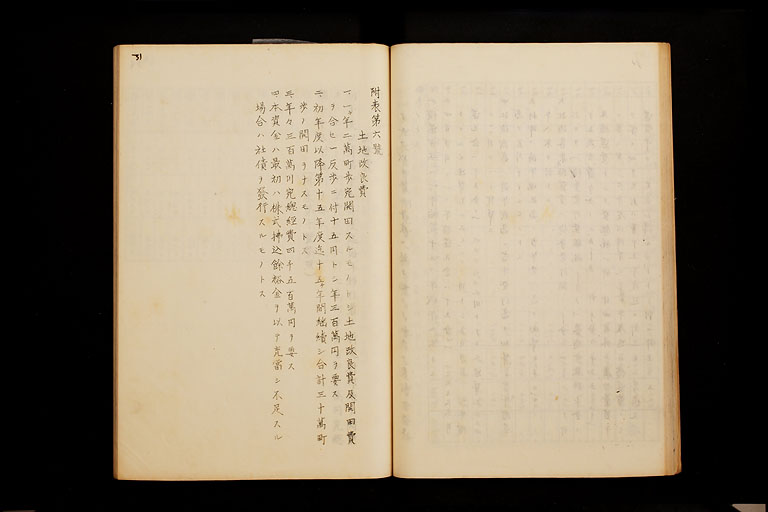 附表第六號
土地改良費
一、一年二萬町歩宛開田スルモノトシ土地改良費及開田費
ヲ合セ一反歩ニ付十五円トシ一年三百萬円ヲ要ス
二、初年度以降第十五年度迄十五年間継續シ合計三十萬町
歩ノ開田ヲナスモノトス
三、年々三百萬円宛總経費四千五百萬円ヲ要ス
四、本資金ハ最初ハ株式拂込餘裕金ヲ以テ充當シ不足スル
場合ハ社債ヲ發行スルモノトス
31